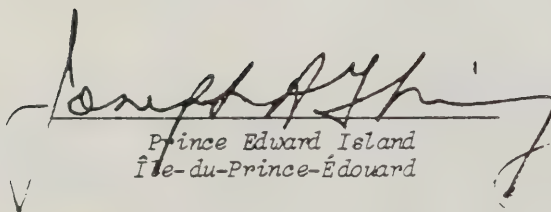 Joseph A
Prince Edward Island
Île-du-Prince-Édouard